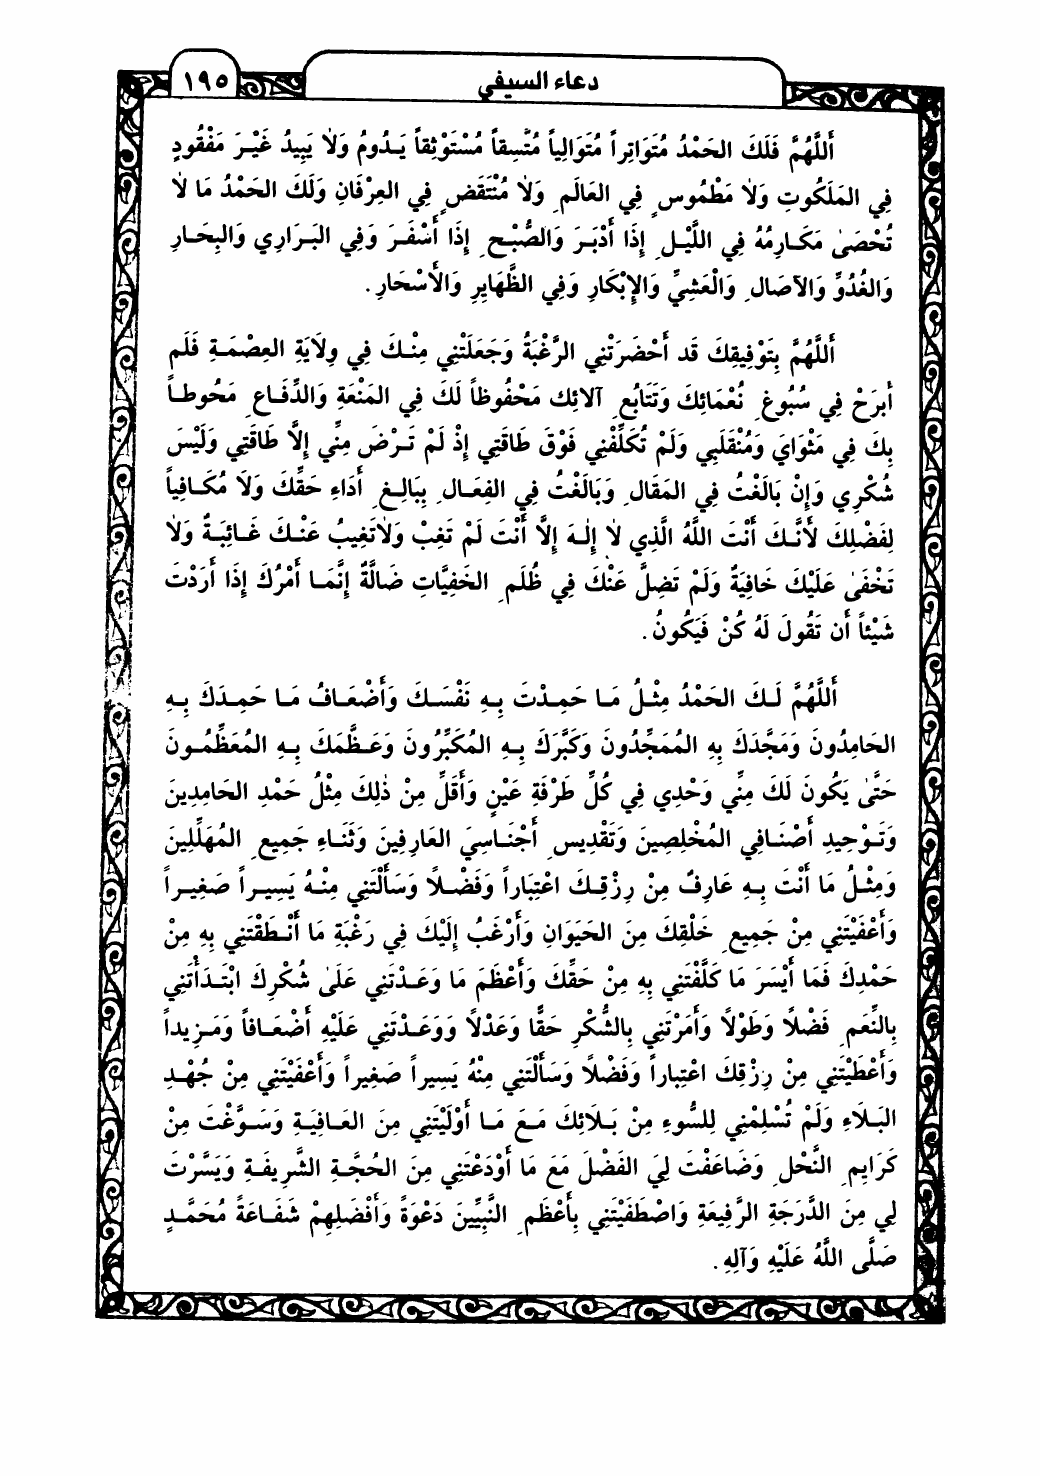 دعاء السيفي
١٩٥
أَللَّهُمَّ فَلَكَ الحَمْدُ مُتَوَاتِراً مُتَوَالِياً مُتَّسِقاً مُسْتَوْثِقاً يَدُومُ وَلَا يَبِيدُ غَيْرَ مَفْقُودٍ
فِي المَلَكُوتِ وَلَا مَطْمُوسٍ فِي العَالَمِ وَلَا مُنْتَقَضٍ فِي العِرْفَانِ وَلَكَ الحَمْدُ مَا لَا
تُحْصَىٰ مَكَارِمُهُ فِي اللَّيْلِ إِذَا أَدْبَرَ وَالصُّبْحِ إِذَا أَسْفَرَ وَفِي البَرَارِي وَالبِحَارِ
وَالغُدُوِّ وَالآصَالِ وَالْعَشِيِّ وَالإِبْكَارِ وَفِي الظَّهَايِرِ وَالأَسْحَارِ.
أَللَّهُمَّ بِتَوْفِيقِكَ قَد أَحْضَرَتْنِي الرَّغْبَةُ وَجَعَلَتْنِي مِنْكَ فِي وِلَايَةِ العِصْمَةِ فَلَم
أَبرَحْ فِي سُبُوغِ نُعْمَائِكَ وَتَتَابُعِ آلَائِك مَحْفُوظاً لَكَ فِي المَنْعَةِ وَالدِّفَاعِ مَحُوطاً
بِكَ فِي مَثْوَايَ وَمُنْقَلَبِي وَلَمْ تُكَلِّفْنِي فَوْقَ طَاقَتِي إِذْ لَمْ تَرْضَ مِنِّي إِلَّا طَاقَتِي وَلَيْسَ
شُكْرِي وَإِنْ بَالَغْتُ فِي المَقَالِ وَبَالَغْتُ فِي الفِعَالِ بِبَالِغِ أَدَاءِ حَقِّكَ وَلَا مُكَافِياً
لِفَضْلِكَ لأَنَّكَ أَنْتَ اللَّهُ الَّذِي لَا إِلٰهَ إِلَّا أَنْتَ لَمْ تَغِبْ وَلَاتَغِيبُ عَنْكَ غَائِبَةٌ وَلَا
تَخْفَىٰ عَلَيْكَ خَافِيَةٌ وَلَمْ تَضِلَّ عَنْكَ فِي ظُلَمِ الخَفِيَّاتِ ضَالَّةٌ إِنَّمَا أَمْرُكَ إِذَا أَرَدْتَ
شَيْئاً أَن تَقُولَ لَهُ كُنْ فَيَكُونُ.
أَللَّهُمَّ لَكَ الحَمْدُ مِثْلُ مَا حَمِدْتَ بِهِ نَفْسَكَ وَأَضْعَافُ مَا حَمِدَكَ بِهِ
الحَامِدُونَ وَمَجَّدَكَ بِهِ المُمَجِّدُونَ وَكَبَّرَكَ بِهِ المُكَبِّرُونَ وَعَظَّمَكَ بِهِ المُعَظِّمُونَ
حَتَّىٰ يَكُونَ لَكَ مِنِّي وَحْدِي فِي كُلِّ طَرْفَةِ عَيْنٍ وَأَقَلِّ مِنْ ذٰلِكَ مِثْلُ حَمْدِ الحَامِدِينَ
وَتَوْحِيدِ أَصْنَافِي المُخْلِصِينَ وَتَقْدِيسِ أَجْنَاسِيَ العَارِفِينَ وَثَنَاءِ جَمِيعِ المُهَلِّلِينَ
وَمِثْلُ مَا أَنْتَ بِهِ عَارِفٌ مِنْ رِزْقِكَ اعْتِبَاراً وَفَضْلاً وَسَأَلْتَنِي مِنْهُ يَسِيراً صَغِيراً
وَأَعْفَيْتَنِي مِنْ جَمِيعِ خَلْقِكَ مِنَ الحَيَوَانِ وَأَرْغَبُ إِلَيْكَ فِي رَغْبَةِ مَا أَنْطَقْتَنِي بِهِ مِنْ
حَمْدِكَ فَمَا أَيْسَرَ مَا كَلَّفْتَنِي بِهِ مِنْ حَقِّكَ وَأَعْظَمَ مَا وَعَدْتَنِي عَلَىٰ شُكْرِكَ ابْتَدَأْتَنِي
بِالنِّعَمِ فَضْلاً وَطَوْلاً وَأَمَرْتَنِي بِالشُّكْرِ حَقّاً وَعَدْلاً وَوَعَدْتَنِي عَلَيْهِ أَضْعَافاً وَمَزِيداً
وَأَعْطَيْتَنِي مِنْ رِزْقِكَ اعْتِبَاراً وَفَضْلاً وَسَأَلْتَنِي مِنْهُ يَسِيراً صَغِيراً وَأَعْفَيْتَنِي مِنْ جُهْدِ
البَلَاءِ وَلَمْ تُسْلِمْنِي لِلسُّوءِ مِنْ بَلَائِكَ مَعَ مَا أَوْلَيْتَنِي مِنَ العَافِيَةِ وَسَوَّغْتَ مِنْ
كَرَايِمِ النَّحْلِ وَضَاعَفْتَ لِيَ الفَضْلَ مَعَ مَا أَوْدَعْتَنِي مِنَ الحُجَّةِ الشَّرِيفَةِ وَيَسَّرْتَ
لِي مِنَ الدَّرَجَةِ الرَّفِيعَةِ وَاصْطَفَيْتَنِي بِأَعْظَمِ النَّبِيِّينَ دَعْوَةً وَأَفْضَلِهِمْ شَفَاعَةً مُحَمَّدٍ
صَلَّى اللَّهُ عَلَيْهِ وَآلِهِ.